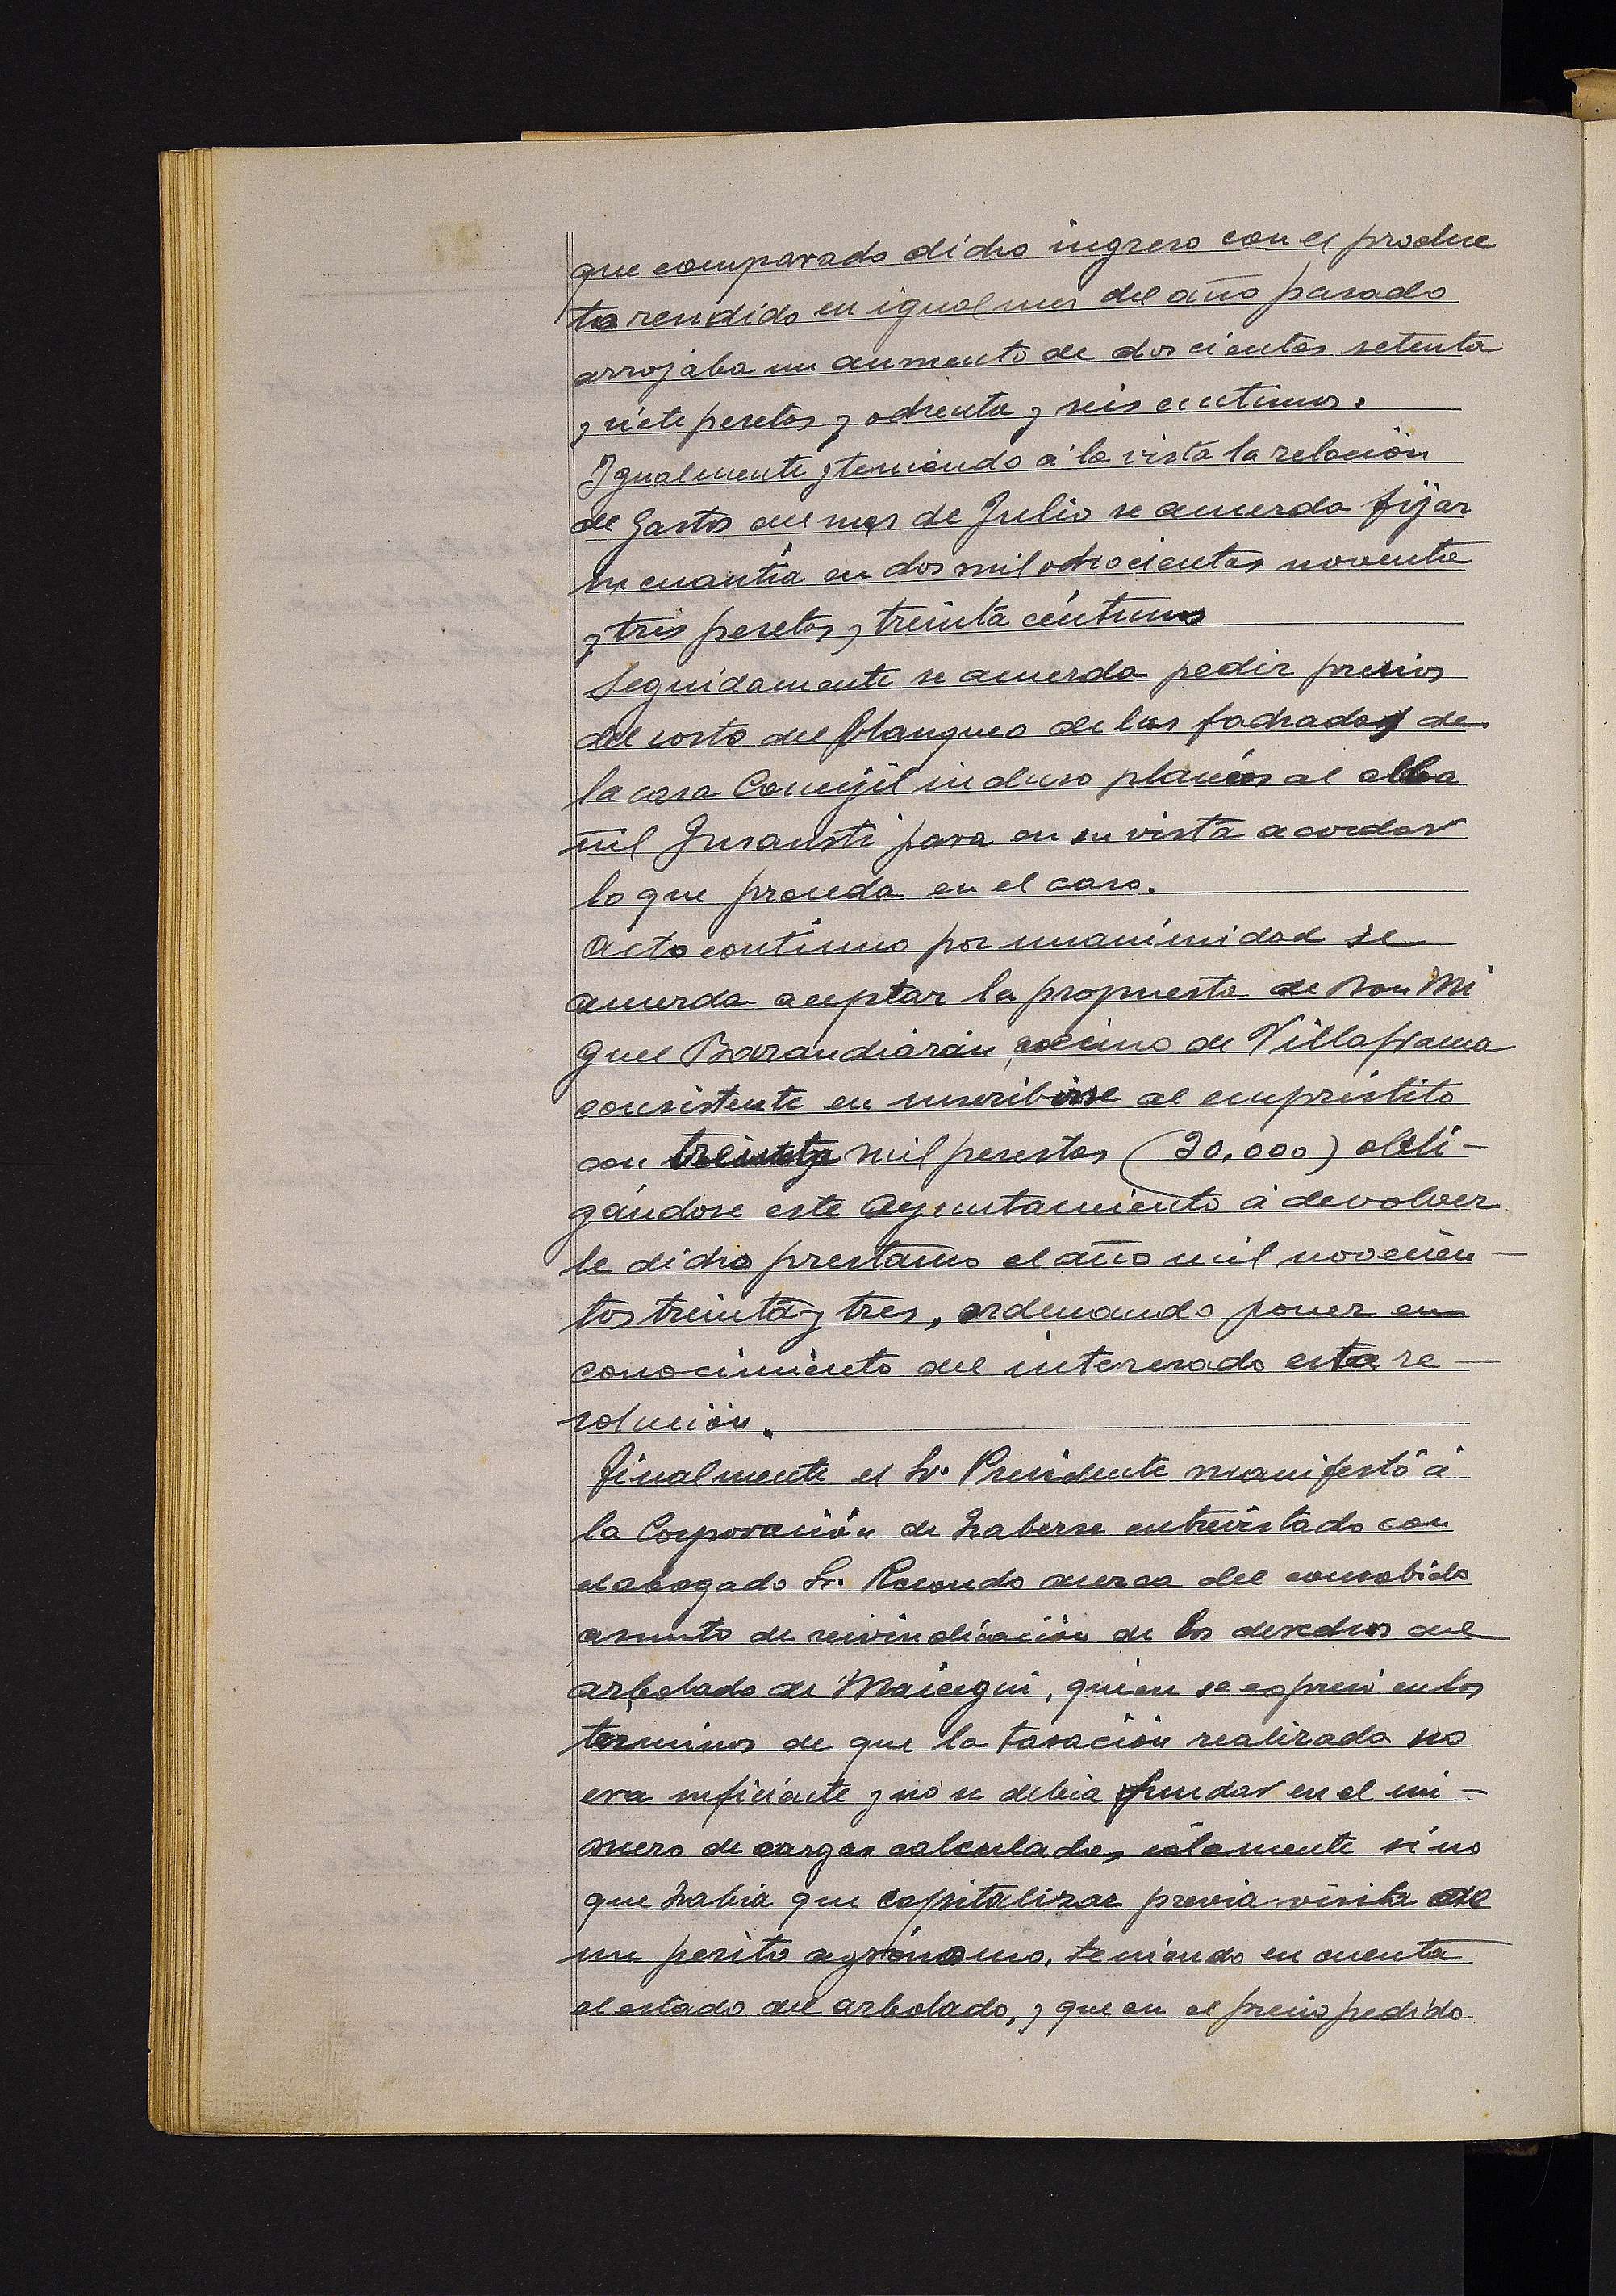 que comparado dicho ingreso con el produc
to rendido en igual mes del año pasado
arrojaba un aumento de doscientas setenta
y siete pesetas y ochenta y seis centimos.
Igualmente y teniendo á la vista la relación
de gastos del mes de Julio se acuerda fijar
su cuantía en dos mil ochocientas noventa
y tres pesetas y treinta céntimos
Seguidamente se acuerda pedir precios
del costo del blanqueo de las fachadas de
la casa Concejil incluso al alba
ñil para en su vista acordar
lo que proceda en el caso.
Acto continuo por unanimidad se
acuerda aceptar la propuesta de Don Mi
guel Barandiarán, vecino de Villafranca
consistente en suscribirse al empréstito
con treinta mil pesestas (30.000) obli-
gándose este Ayuntamiento á devolver
le dicho prestamo el año mil novecien-
tos treinta y tres, ordenando poner en
conocimiento del interesado esta re-
solución.
Finalmente el Sr. Presidente manifestó á
la Corporación de haberse entrevistado con
el abogado Sr. acerca del consabido
asunto de reivindicación de los derechos del
arbolado de Maicegui, quien se expresó en los
terminos de que la tasación realizada no
era suficiente y no se debia fundar en el nú-
mero de cargas calculadas sólamente sino
que habia que capitalizar previa visita de
un perito agrónomo, teniendo en cuenta
el estado del arbolado, y que en el precio pedido